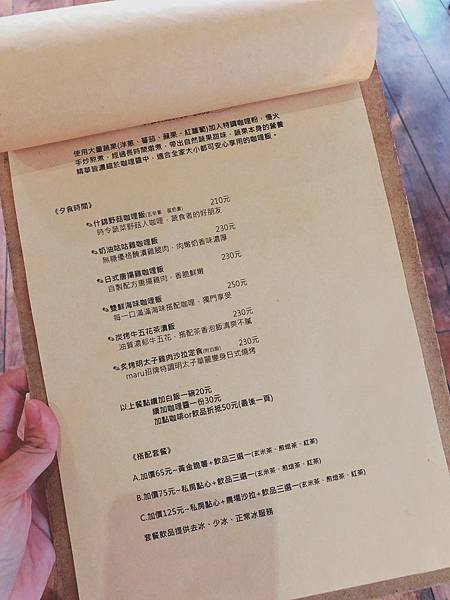 使用大量蔬果(洋蔥、蕃茄、蘋果、紅蘿蔔)加入特調咖哩粉，慢火
手炒熬煮，經過長時間燉煮，帶出自然蔬果甜味，蔬果本身的營養
精華皆濃縮於咖哩醬中，適合全家大小都可安心享用的咖哩飯。
《夕食時間》
什錦野菇咖哩飯(五辛素、蛋奶素) 210元
時令蔬菜野菇入咖哩，蔬食者的好朋友
奶油咕咕雞咖哩飯 230元
無糖優格醃漬雞腿肉，肉嫩奶香味濃厚
日式唐揚雞咖哩飯 230元
自製配方唐揚雞肉，香脆鮮嫩
雙鮮海味咖哩飯 250元
每一口滿滿海味搭配咖哩，獨門享受
炭烤牛五花茶漬飯 230元
油質濃郁牛五花，搭配茶香泡飯清爽不膩
炙烤明太子雞肉沙拉定食(附白飯) 230元
maru招牌特調明太子華麗變身日式燒烤
以上餐點續加白飯一碗20元
續加咖哩醬一份30元
加點咖啡or飲品折抵50元(最後一頁)
《搭配套餐》
A.加價65元~黃金脆薯+飲品三選一(玄米茶、煎焙茶、紅茶)
B.加價75元~私房點心+飲品三選一(玄米茶、煎焙茶、紅茶)
C.加價125元~私房點心+農場沙拉+飲品三選一(玄米茶、煎焙茶、紅茶)
套餐飲品提供去冰、少冰、正常冰服務